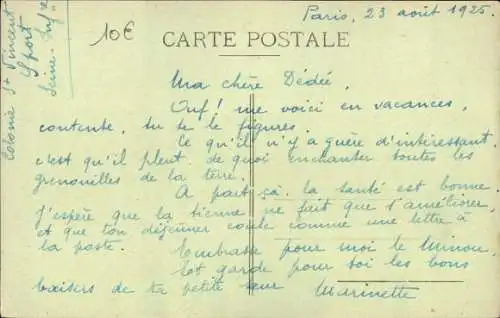 Paris, 23 août 1925.
Colonie St Vincent
Sport
Seine-Infre
10€
CARTE POSTALE
Ma chère Dédée,
Ouf! me voici en vacances,
contente, tu te le figures.
Ce qu'il n'y a guère d'intéressant
c'est qu'il pleut. de quoi enchanter toutes les
grenouilles de la terre.
A part ça, la santé est bonne
J'espère que la tienne ne fait que s'améliorer,
et que ton déjeuner coule comme une lettre à
la poste.
Embrasse pour moi le Minou,
et garde pour toi les bons
baisers de ta petite sœur
Marinette